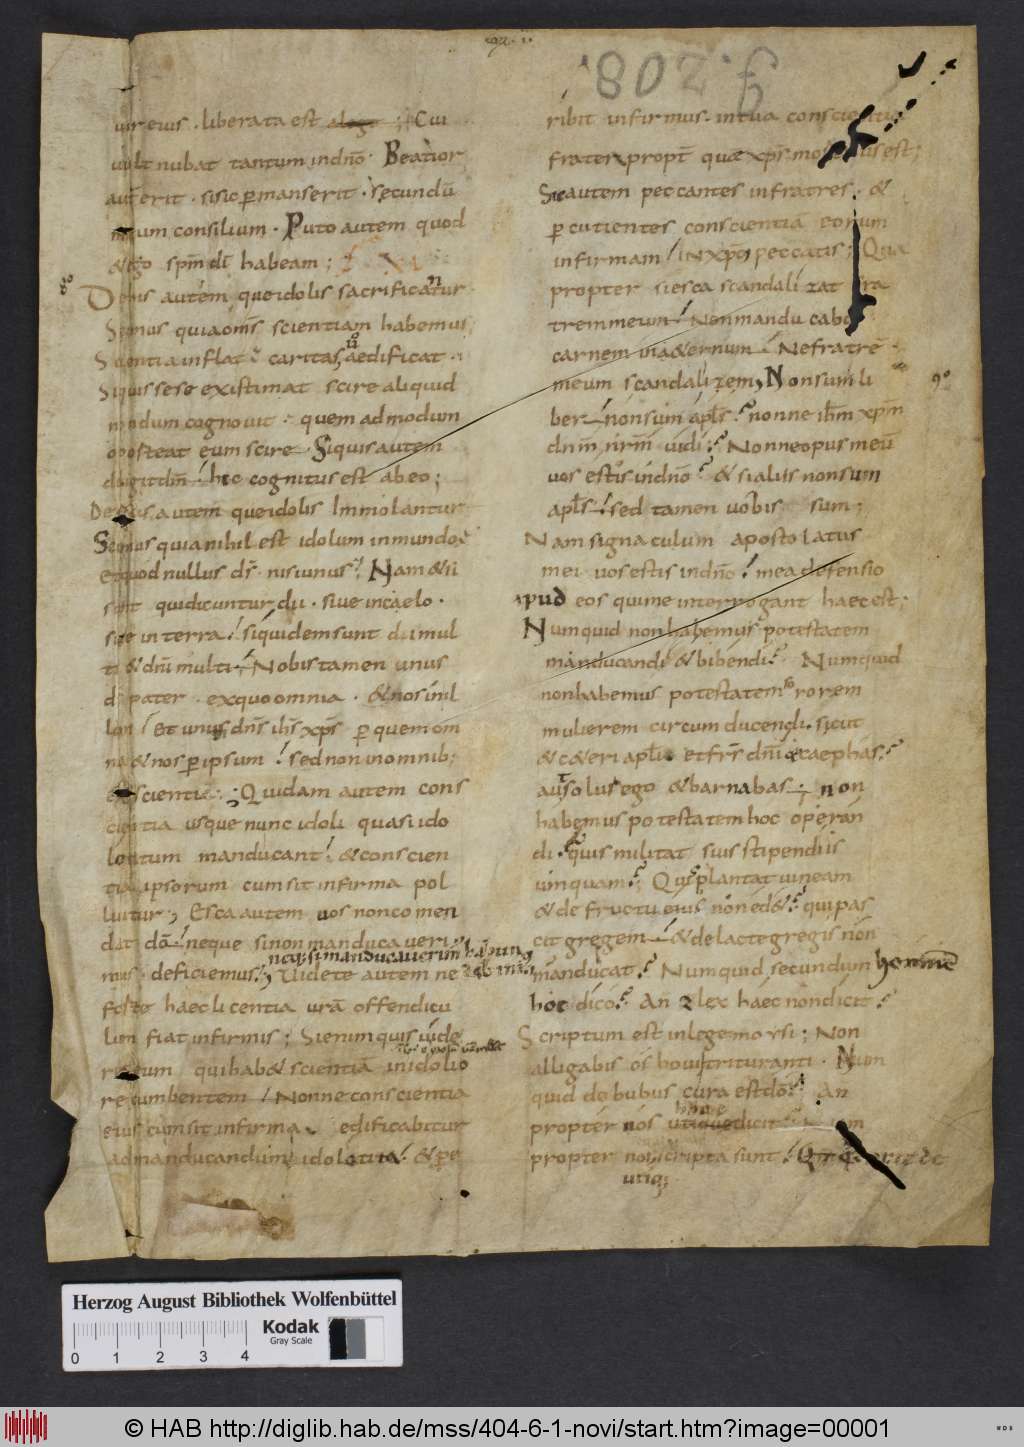 f. 208.
vir eius . liberata est ; Cui
vult nubat tantum in dno . Beatior
aut erit . si sic pmanserit . secundū
meum consilium . Puto autem quod
& ego spm dī habeam ;
8º
De his autem que idolis sacrificantur .
Scimus quia oms scientiam habemus
Scientia inflat caritas ū aedificat .
Siquis se se existimat scire aliquid
nondum cognovit . quem ad modum
oporteat eum scire Siquis autem
diligit dm hic cognitus est ab eo ;
De escis autem que idolis Immolantur
Scimus quia nihil est idolum in mundo
& quod nullus ds nisi unus Nam & si
sunt qui dicuntur dii . sive in caelo .
sive in terra siquidem sunt dii mul
ti & dnī multi Nobis tamen unus
ds pater . ex quo omnia . & nos in il
lum Et unus dns ihs xps p quem om
nia & nos p ipsum sed non in omnib;
est scientia ; Quidam autem cons
cientia usque nunc idoli quasi ido
lotum manducant & conscien
tia ipsorum cum sit infirma pol
luitur ; Esca autem nos non comen
dat dō neque si non manducaveri
neq; si manducaverim habundabimus
mus deficiemus Videte autem ne
forte haec licentia vrā offendicu
lum fiat infirmis ; Si enim quis vide
rit eum qui hab& scientiā in idolio
recumbentem Nonne conscientia
eius cum sit infirma edificabitur
ad manducandum idolotita & pe
ribit infirmus . in tua conscientia
frater propt quē xps mortuus est ;
Sic autem peccantes in fratres . &
pcutientes conscientiā eorum
infirmam IN xpō peccatis ; Qua
propter si esca scandalizat fra
trem meum Non manducabo
carnem in aeternum Ne fratrē
meum scandalizem ; Non sum li
9º
ber non sum apls nonne ihm xpm
dnm nrm vidi Non ne opus meū
vos estis in dno & si aliis non sum
apls sed tamen vobis sum ;
Nam signaculum apostolatus
mei vos estis in dno mea defensio
apud eos qui me interrogant haec est ;
Numquid non habemus potestatem
manducandi & bibendi Numquid
non habemus potestatem sororem
mulierem circumducendi . sicut
& c&eri apli et frs dnī & caephas
aut solus ego & barnabas non
habemus potestatem hoc operan
di . quis militat suis stipendiis
umquam Quis plantat vineam
& de fructu eius non ed& qui pas
cit gregem & de lacte gregis non
manducat Numquid secundum hominē
hoc dico An & lex haec non dicit
Scriptum est in lege moysi ; Non
alligabis os bovi trituranti . Num
quid de bubus cura est dō An
propter nos utique dicit Nam
propter nos scripta sunt
utiq;
Herzog August Bibliothek Wolfenbüttel
Kodak
Gray Scale
0 1 2 3 4
© HAB http://diglib.hab.de/mss/404-6-1-novi/start.htm?image=00001